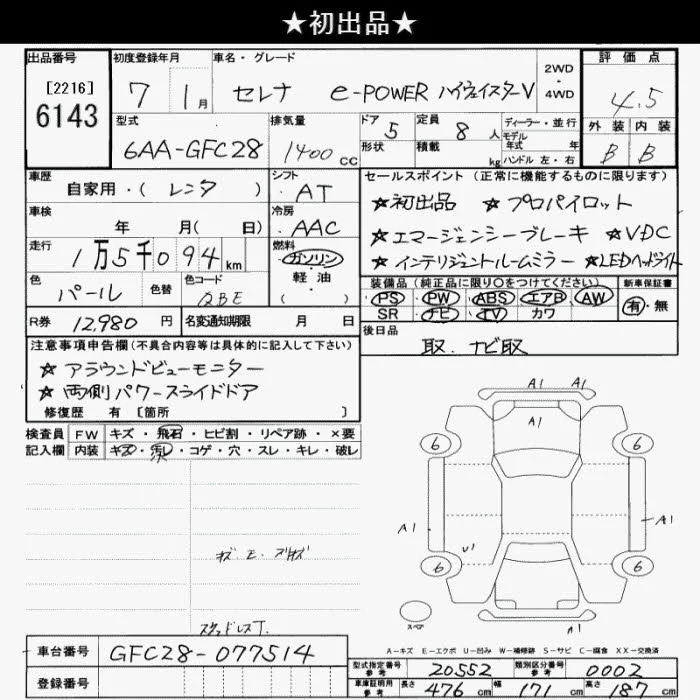 ★初出品★
出品番号 初度登録年月 車名・グレード 2WD 評価点
[2216] 7 1月 セレナ e-POWER ハイウェイスターV 4WD 4.5
6143 型式 排気量 ドア 5 定員 8人 ディーラー・並行 外装 内装
6AA-GFC28 1400cc 形状 積載 kg モデル年式 年 ハンドル 左・右 B B
車歴 シフト セールスポイント (正常に機能するものに限ります)
自家用・( レンタ ) AT ★初出品 ★プロパイロット
車検 冷房 ★エマージェンシーブレーキ ★VDC
年 月( 日) AAC ★インテリジェントルームミラー ★LEDヘッドライト
走行 燃料 装備品 (純正品に限り○をつけてください) 新車保証書
1万5千094km ガソリン・軽油・( ) PS PW ABS エアB AW 有・無
色 色替 色コード SR ナビ TV カワ
パール QBE 後日品
R券 12,980円 名変通知期限 月 日 取、ナビ取
注意事項申告欄 (不具合内容等は具体的に記入して下さい)
★アラウンドビューモニター
★両側パワースライドドア
修復歴 有 [箇所 ]
検査員 FW キズ・飛石・ヒビ割・リペア跡・×要
記入欄 内装 キズ・汚レ・コゲ・穴・スレ・キレ・破レ
A1 A1
A1
6 6
A1 A1
U1
6 6
スペア A1
スタッドレスT.
A-キズ E-エクボ U-凹み W-補修跡 S-サビ C-腐食 XX-交換済
車台番号 GFC28-077514 型式指定番号 参考 20552 類別区分番号 参考 0002
登録番号 車庫証明用 参考 長さ 476cm 幅 171cm 高さ 187cm